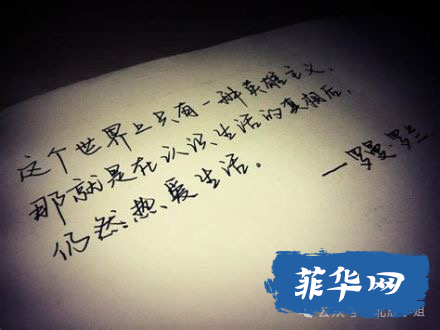 这个世界上只有一种英雄主义，
那就是在认识生活的真相后，
仍然热爱生活。
—罗曼·罗兰
菲华网